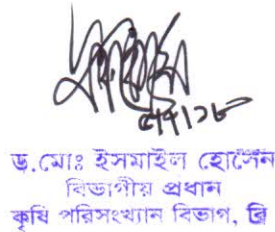 ড.মোঃ ইসমাইল হোসেন
বিভাগীয় প্রধান
কৃষি পরিসংখ্যান বিভাগ, ব্রি